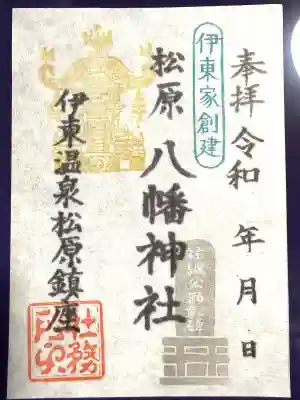 奉拝 令和 年 月 日
伊東家創建
松原 八幡神社
伊東温泉松原鎮座
社務所印